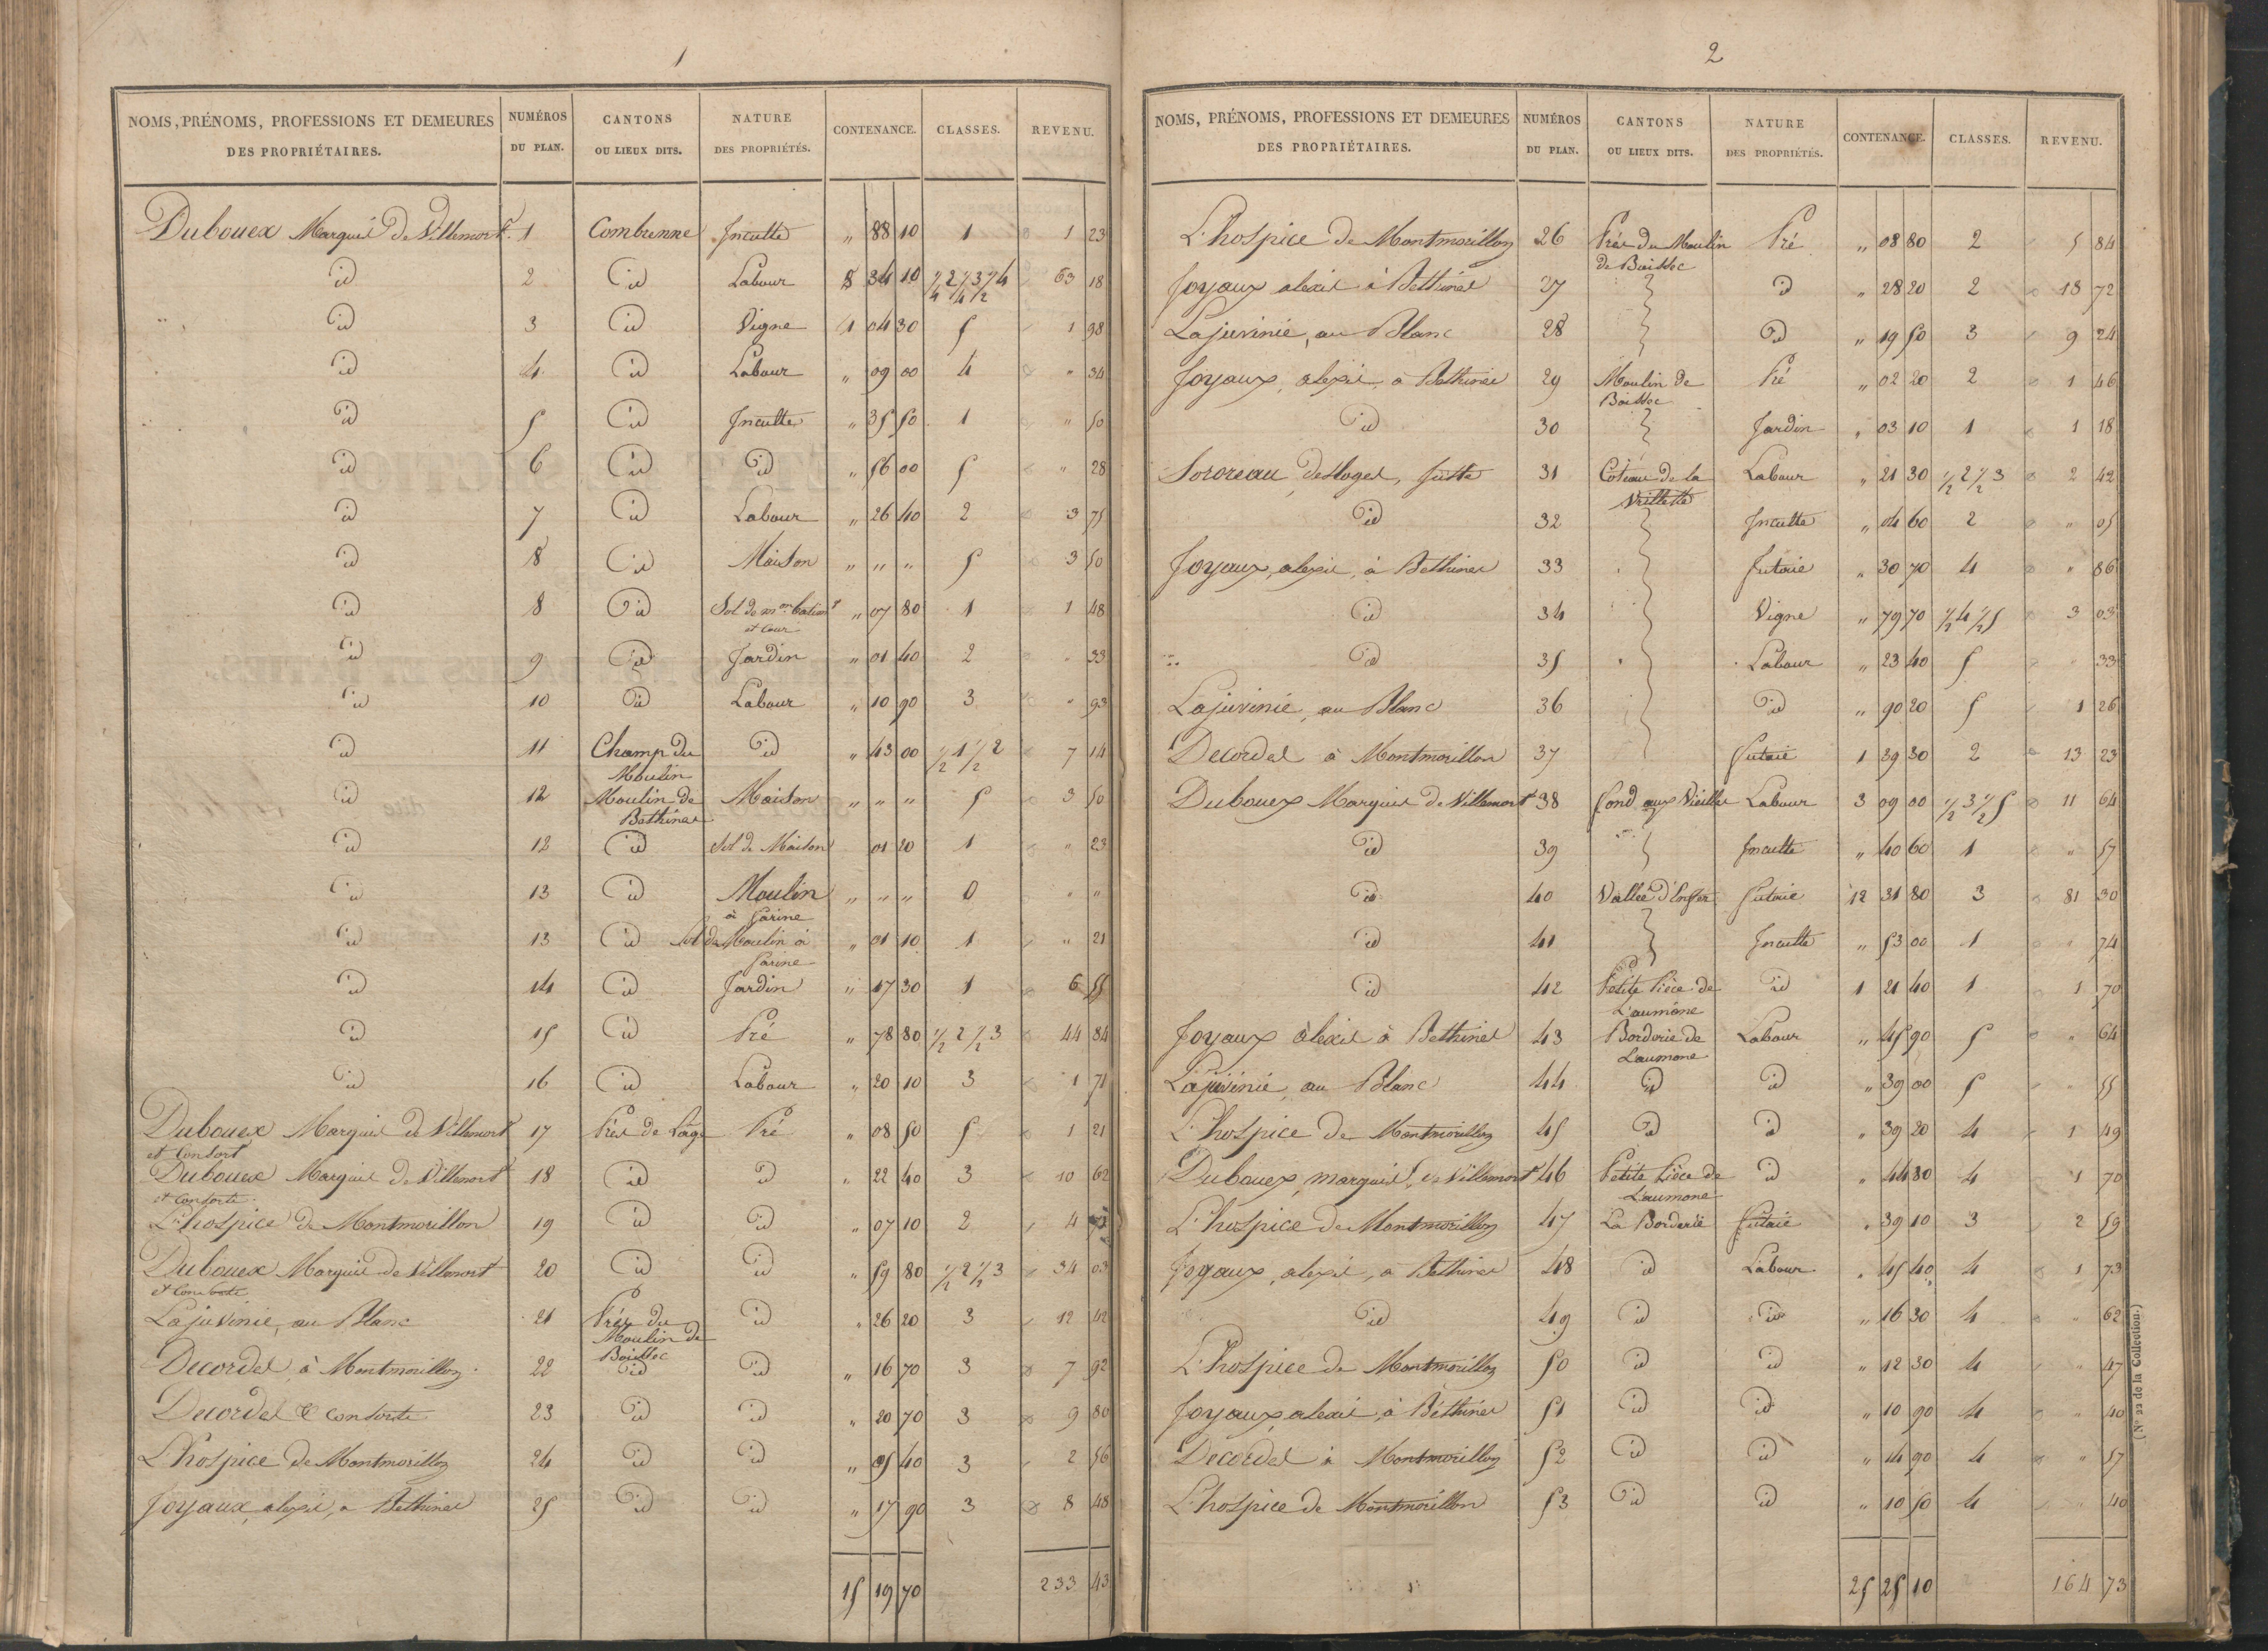 1
NOMS, PRÉNOMS, PROFESSIONS ET DEMEURES DES PROPRIÉTAIRES. | NUMÉROS DU PLAN. | CANTONS OU LIEUX DITS. | NATURE DES PROPRIÉTÉS. | CONTENANCE. | CLASSES. | REVENU.
Dubouex Marquis De Villemort 1 Combrenne Inculte " 88 10 1 1 23
id 2 id Labour 8 34 10 1/4 2 1/4 3 1/2 4 63 18
id 3 id Vigne 1 04 30 5 1 98
id 4 id Labour " 09 00 4 " 34
id 5 id Inculte " 35 50 1 " 50
id 6 id id " 56 00 5 " 28
id 7 id Labour " 26 40 2 3 75
id 8 id Maison " " " 5 3 50
id 8 id Sol de mon batimt et Cour " 07 80 1 1 48
id 9 id Jardin " 01 40 2 " 33
id 10 id Labour " 10 90 3 " 93
id 11 Champ du Moulin id " 43 00 1/2 1 1/2 2 7 14
id 12 Moulin de Bethines Maison " " " 5 3 50
id 12 id Sol de Maison 01 20 1 " 23
id 13 id Moulin à farine " " " 0 " "
id 13 id Sol du Moulin à farine " 01 10 1 " 21
id 14 id Jardin " 17 30 1 6 55
id 15 id Pré " 78 80 1/2 2 1/2 3 44 84
id 16 id Labour " 20 10 3 1 71
Dubouex Marquis de Villemort et Consort 17 Prés de Lage Pré " 08 50 5 1 21
Dubouex Marquis De Villemort et Consorts 18 id id " 22 40 3 10 62
L'hospice De Montmorillon 19 id id " 07 10 2 4
Dubouex Marquis de Villemort et Consorts 20 id id " 59 80 1/2 2 1/2 3 34 03
Lajuvinie, au Blanc 21 Prés du Moulin de Boissec id " 26 20 3 12 42
Decordes, à Montmorillon 22 id id " 16 70 3 7 92
Decordes & consorts 23 id id " 20 70 3 9 80
L'hospice de Montmorillon 24 id id " 05 40 3 2 56
Joyaux, alexis, a Bethines 25 id id " 17 90 3 8 48
15 19 70 233 43
2
NOMS, PRÉNOMS, PROFESSIONS ET DEMEURES DES PROPRIÉTAIRES. | NUMÉROS DU PLAN. | CANTONS OU LIEUX DITS. | NATURE DES PROPRIÉTÉS. | CONTENANCE. | CLASSES. | REVENU.
L'hospice de Montmorillon 26 Prés du Moulin de Boissec Pré " 08 80 2 5 84
Joyaux alexis à Bethines 27 id " 28 20 2 18 72
Lajuvinie, au Blanc 28 id " 19 50 3 9 24
Joyaux, alexis, à Bethines 29 Moulin de Boissec Pré " 02 20 2 1 46
id 30 Jardin " 03 10 1 1 18
Sororeau desloges, juste 31 Coteau de la Labour " 21 30 1/2 2 1/2 3 2 42
id 32 Inculte " 04 60 2 " 05
Joyaux, alexis, à Bethines 33 futaie " 30 70 4 " 86
id 34 Vigne " 79 70 1/2 4 1/2 5 3 03
id 35 Labour " 23 40 5 " 33
Lajuvinie, au Blanc 36 id " 90 20 5 1 26
Decordes à Montmorillon 37 futaie 1 39 30 2 13 23
Dubouex Marquis De Villemort 38 fond aux Vieilles Labour 3 09 00 1/2 3 1/2 5 11 64
id 39 Inculte " 40 60 1 " 57
id 40 Vallée d'Enfer futaie 12 31 80 3 81 30
id 41 Inculte " 53 00 1 " 74
id 42 Petite Pièce de Laumône id 1 21 40 1 1 70
Joyaux alexis à Bethines 43 Borderie de Laumone Labour " 45 90 5 " 64
Lajuvinie, au Blanc 44 id id " 39 00 5 " 55
L'hospice De Montmorillon 45 id id " 39 20 4 1 49
Dubouex, marquis de Villemort 46 Petite Pièce de Laumone id " 44 80 4 1 70
L'hospice De Montmorillon 47 La Borderie futaie " 39 10 3 2 59
Joyaux, alexis, à Bethines 48 id Labour " 45 40 4 1 73
id 49 id id " 16 30 4 " 62
L'hospice De Montmorillon 50 id id " 12 30 4 " 47
Joyaux, alexis, à Béthines 51 id id " 10 90 4 " 40
Decordes à Montmorillon 52 id id " 14 90 4 " 57
L'hospice de Montmorillon 53 id id " 10 50 4 " 40
25 25 10 164 73
(N° 22 de la Collection.)